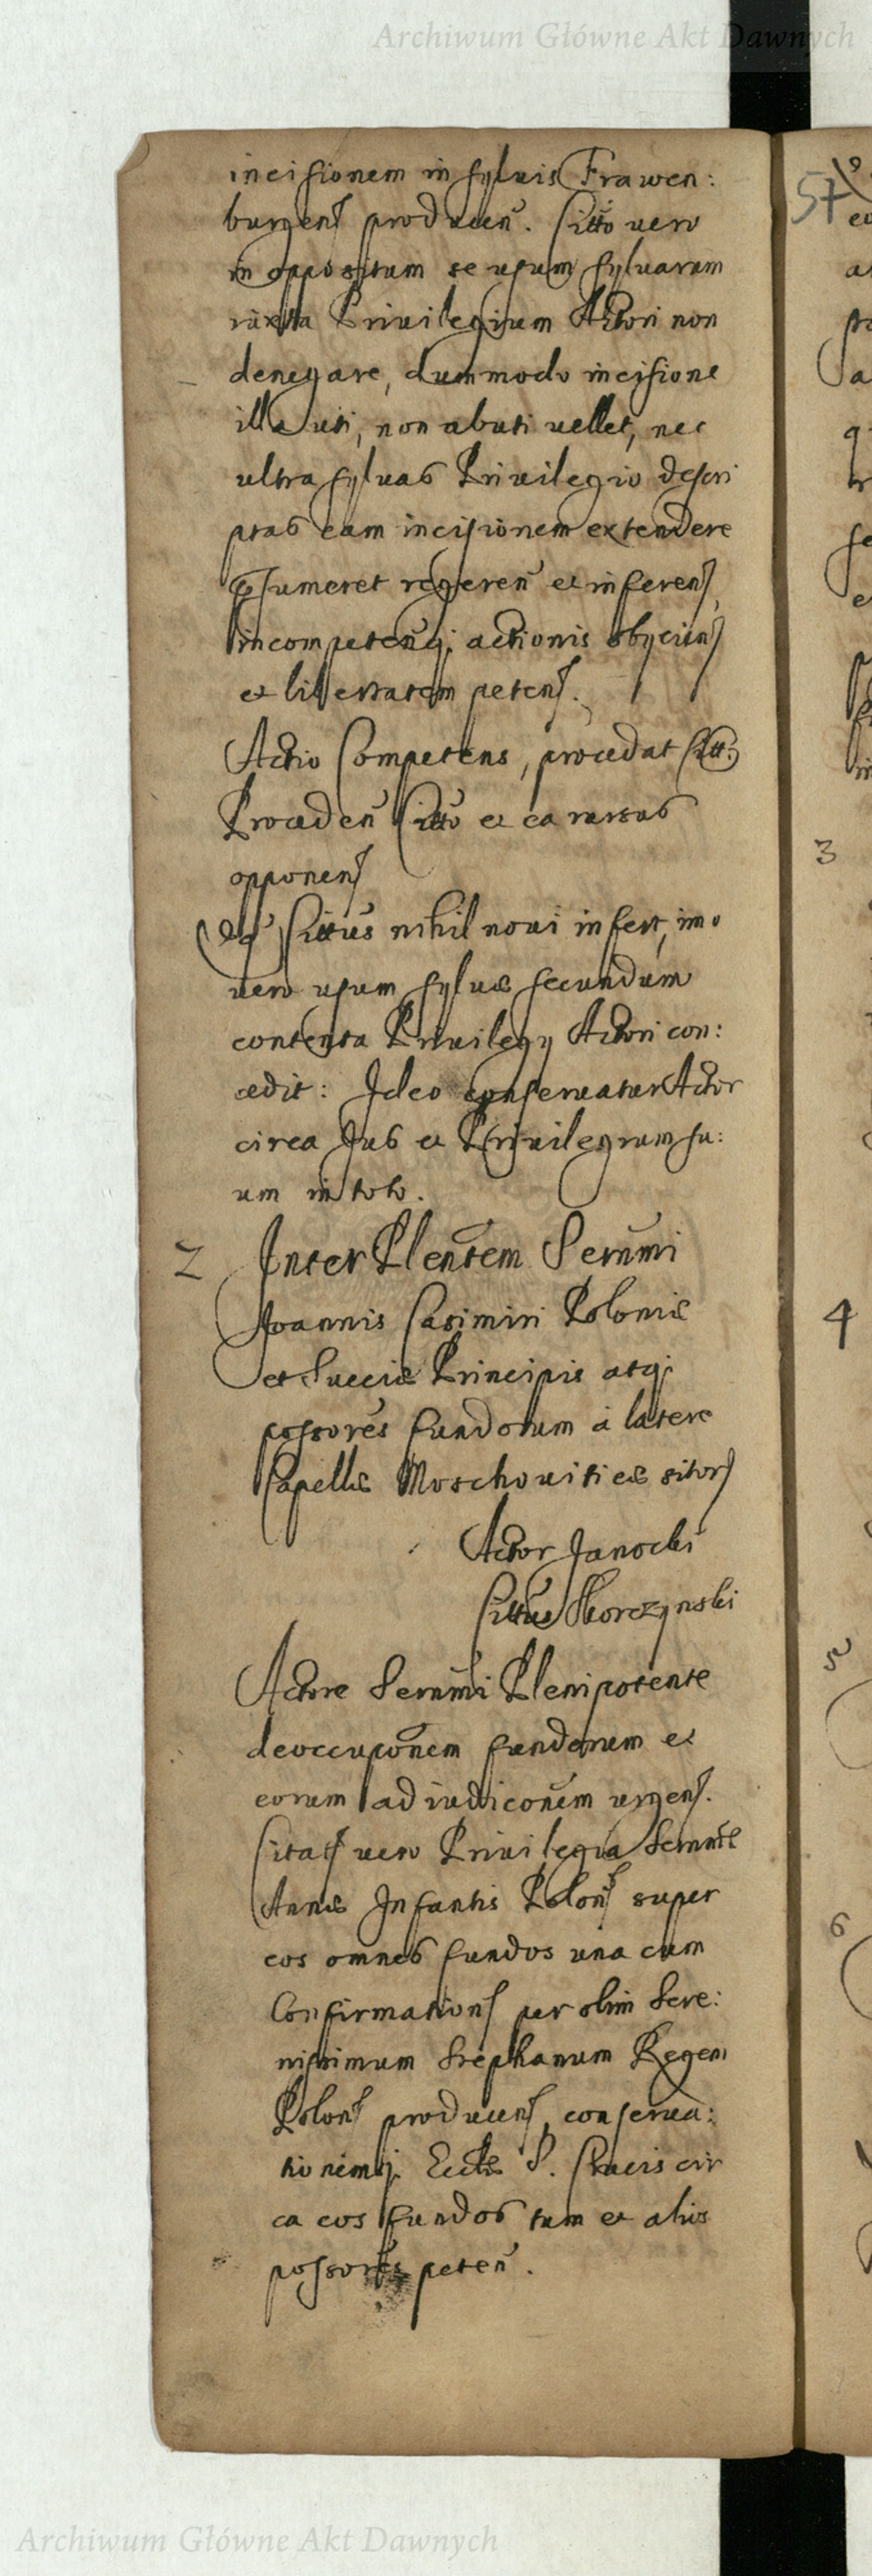 Archiwum Główne Akt Dawnych
incisionem in sylvis Frawen:
burgens producen. Citto vero
in oppositum se usum sylvarum
iuxta Privilegium Actori non
denegare, dummodo incisione
illa uti, non abuti vellet, nec
ultra sylvas Privilegio descri
ptas eam incisionem extendere
præsumeret regeren et inferens,
incompetenq; actionis obijciens
et libertatem petens.
Actio Competens, procedat Citt:
Proceden Citto et ea rursus
opponens
Cittus nihil novi infert, imo
vero usum sylvæ secundum
contenta Privilegij Actori con:
cedit: Ideo conservatur Actor
circa Jus et Privilegium su:
um in toto.
2 Inter Plentem Sermi
Joannis Casimiri Poloniæ
et Sueciæ Principis atq;
possores fundorum à latere
Capellæ Moschoviticæ sitors
Actor Janocki
Cittus Skorczynski
Actore Sermi Plenipotente
deoccuponem fundorum et
eorum adiudiconem urgens.
Citats vero Privilegia Sermæ
Annæ Infantis Polons super
eos omnes fundos una cum
Confirmations per olim Sere:
nissimum Stephanum Regem
Polons producens, conserva:
tionemq; Eccle S. Crucis cir
ca eos fundos tum et alios
possores peten.
57
3
4
5
6
Archiwum Główne Akt Dawnych